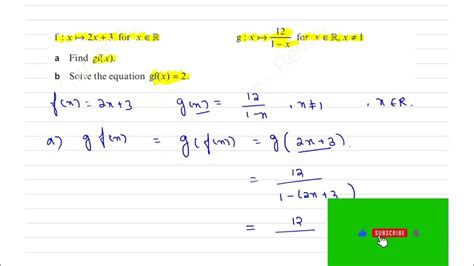 f : x ↦ 2x + 3 for x ∈ ℝ g : x ↦ 12/(1 − x) for x ∈ ℝ, x ≠ 1
a Find gf(x).
b Solve the equation gf(x) = 2.
f(x) = 2x+3 g(x) = 12/(1-x) , x ≠ 1 , x ∈ ℝ.
a) g f(x) = g(f(x)) = g(2x+3).
= 12/(1-(2x+3)
= 12
SUBSCRIBE